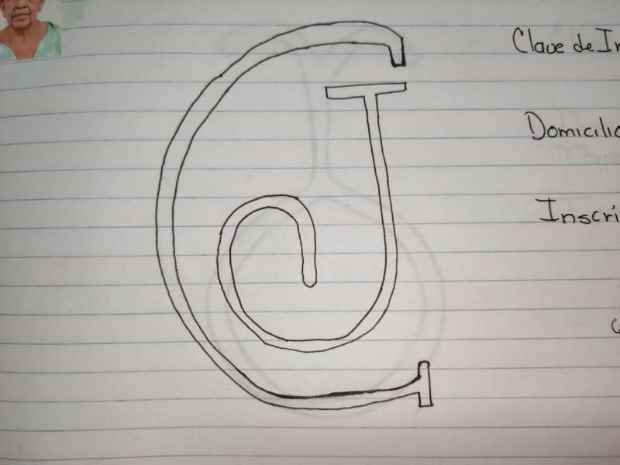 CJ
Clave de In
Domicilio
Inscri